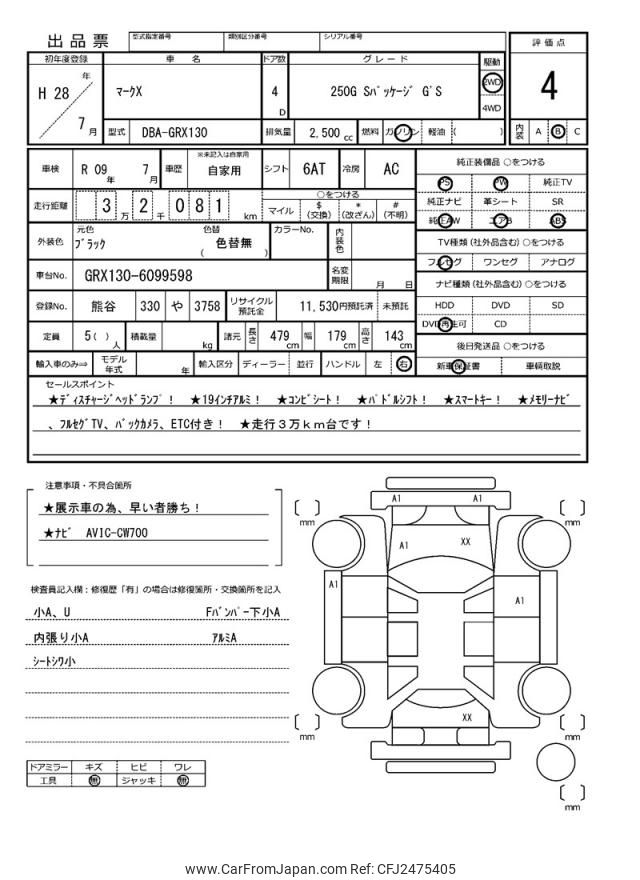 出品票
型式指定番号 類別区分番号 シリアル番号
評価点
4
初年度登録 車名 ドア数 グレード 駆動
H 28 年 7 月
マークX
4 D
250G Sパッケージ G'S
2WD
4WD
型式 DBA-GRX130 排気量 2,500 cc 燃料 ガソリン 軽油 ( )
内装 A B C
車検 R 09 年 7 月 車歴 ※未記入は自家用 自家用 シフト 6AT 冷房 AC
純正装備品 ○をつける
PS PW 純正TV
純正ナビ 革シート SR
純正AW エアB ABS
走行距離 3 万 2 千 0 8 1 km
○をつける
マイル $ (交換) * (改ざん) # (不明)
TV種類 (社外品含む) ○をつける
フルセグ ワンセグ アナログ
外装色 元色 ブラック 色替 ( 色替無 ) カラーNo. 内装色
ナビ種類 (社外品含む) ○をつける
HDD DVD SD
DVD再生可 CD
車台No. GRX130-6099598 名変期限 月 日
登録No. 熊谷 330 や 3758 リサイクル預託金 11,530円預託済 未預託
定員 5( ) 人 積載量 kg 諸元 長さ 479 cm 幅 179 cm 高さ 143 cm
後日発送品 ○をつける
新車保証書 車輌取説
輸入車のみ⇒ モデル年式 年 輸入区分 ディーラー 並行 ハンドル 左 右
セールスポイント
★ディスチャージヘッドランプ! ★19インチアルミ! ★コンビシート! ★パドルシフト! ★スマートキー! ★メモリーナビ
、フルセグTV、バックカメラ、ETC付き! ★走行3万km台です!
注意事項・不具合箇所
★展示車の為、早い者勝ち!
★ナビ AVIC-CW700
検査員記入欄:修復歴「有」の場合は修復箇所・交換箇所を記入
小A、U Fバンパー下小A
内張り小A アルミA
シートシワ小
ドアミラー キズ ヒビ ワレ
工具 無 ジャッキ 無
A1 A1
A1 XX
A1 A1
XX
mm mm
mm mm
mm
www.CarFromJapan.com Ref: CFJ2475405